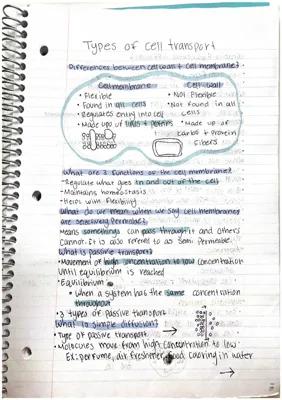 Types of cell transport
Differences between cell wall + cell membrane?
Cell membrane
Cell wall
• Flexible
• Not Flexible
• Found in all cells
• Not found in all
• Regulates entry into cell
cells
• Made up of lipids + proteins
• Made up of
carbs + protein
fibers
What are 3 functions of the cell membrane?
- Regulate what goes in and out of the cell
- Maintains homeostasis
- Helps with flexibility
What do we mean when we say cell membranes
are selectively permeable?
Means somethings can pass through it and others
cannot. It is also referred to as semi permeable.
What is passive transport?
• Movement of high concentration to low concentration
until equilibrium is reached
• Equilibrium
• When a system has the same concentration
throughout
• 3 types of passive transport
What is simple diffusion?
• Type of passive transport
• Molecules move from high concentration to low
Ex: perfume, air freshener, food coloring in water